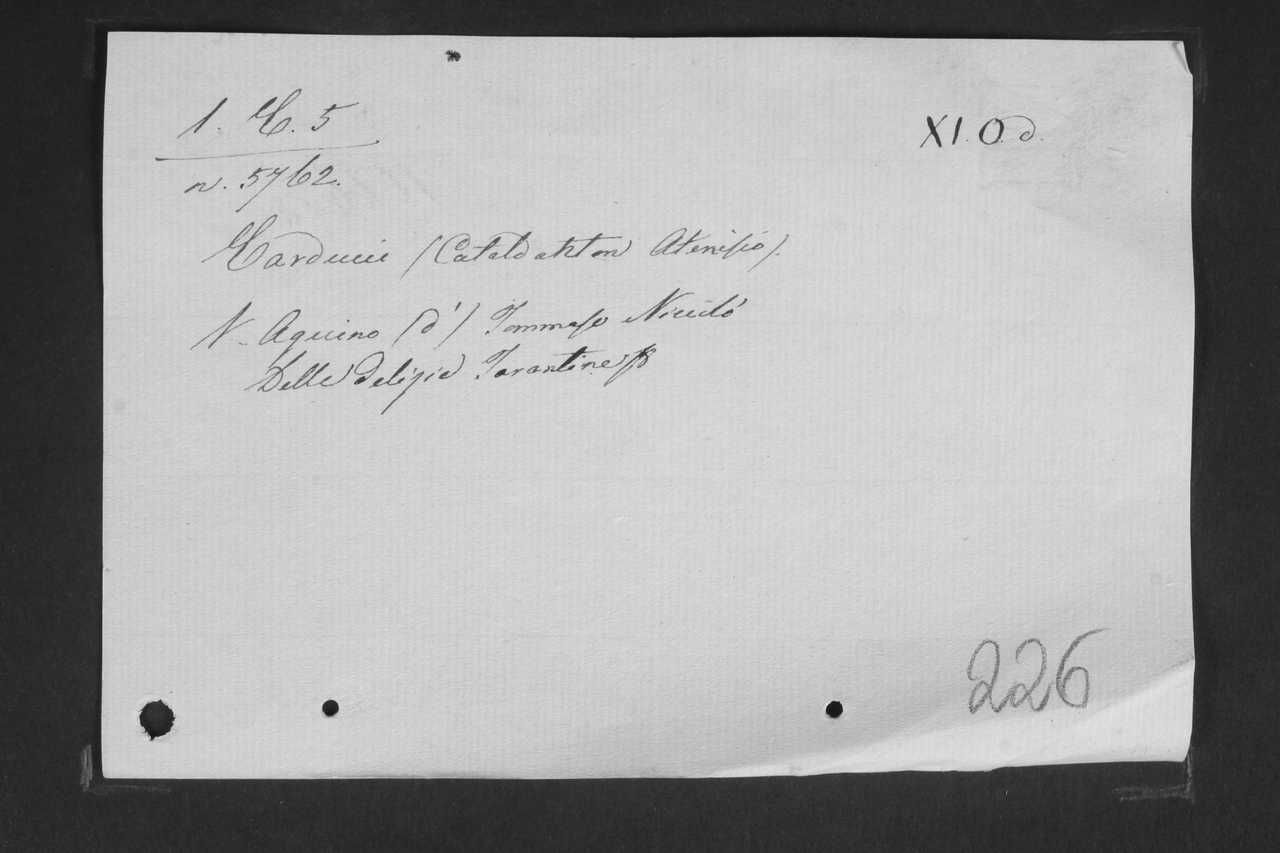 1. C. 5
XI. O. d.
n. 5762.
Carducci (Cataldanton Atenisio).
V. Aquino (d') Tommaso Niccolò
Delle delizie Tarantine
226